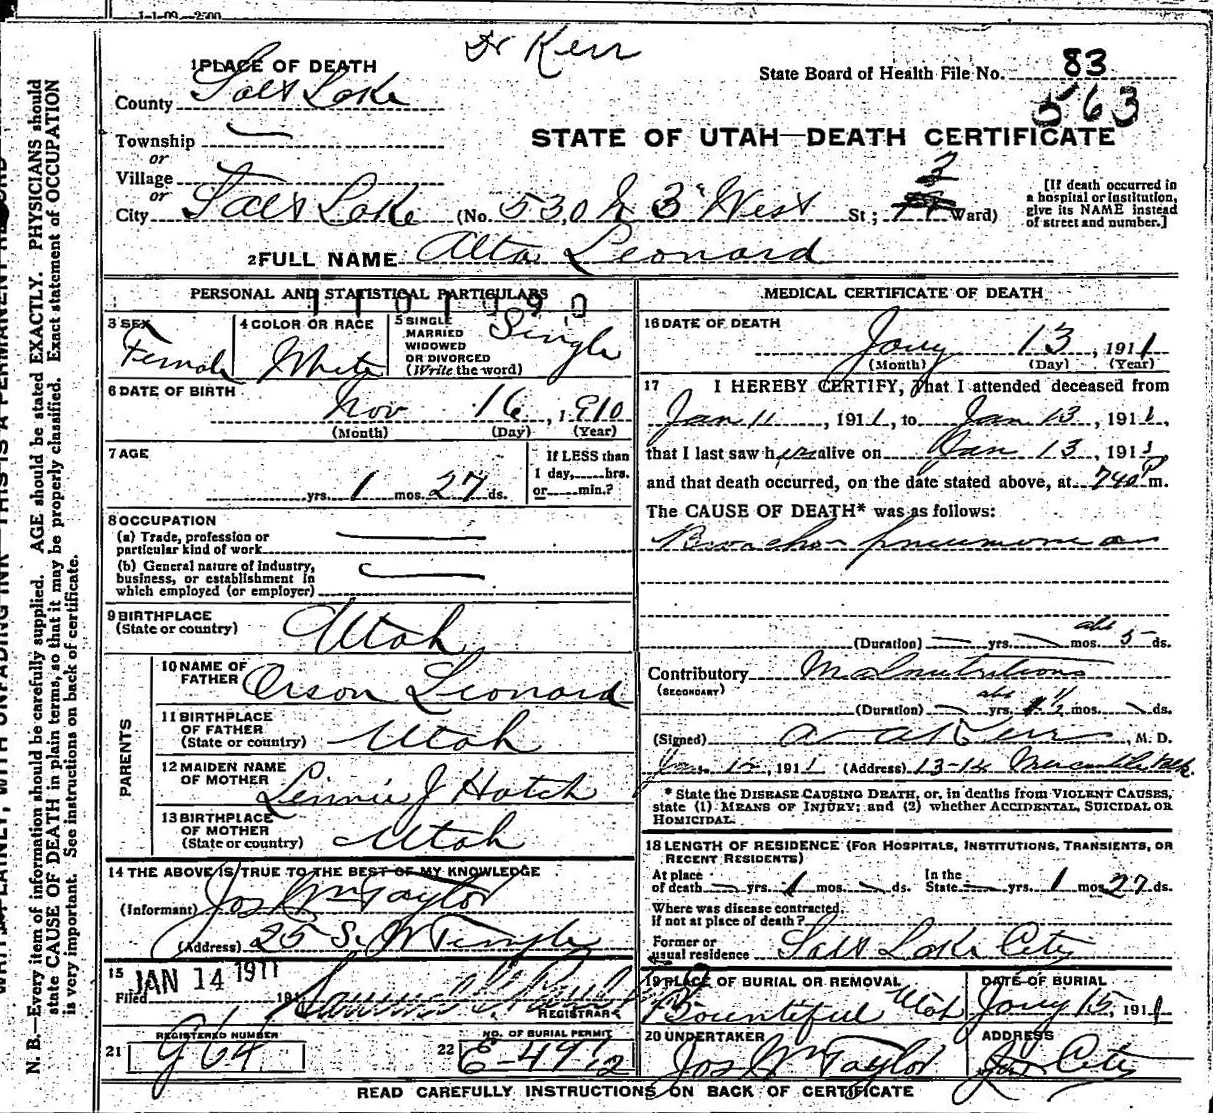 1-1-09—2500
Dr Kerr
1 PLACE OF DEATH
State Board of Health File No. 83
563
County Salt Lake
Township
or
Village
or
STATE OF UTAH—DEATH CERTIFICATE
City Salt Lake (No. 530 N 3 West St; 2 Ward)
[If death occurred in a hospital or institution, give its NAME instead of street and number.]
2 FULL NAME Alta Leonard
PERSONAL AND STATISTICAL PARTICULARS
3 SEX Female
4 COLOR OR RACE White
5 SINGLE MARRIED WIDOWED OR DIVORCED (Write the word) Single
6 DATE OF BIRTH Nov 16, 1910
(Month) (Day) (Year)
7 AGE
yrs. 1 mos. 27 ds.
If LESS than
1 day,......hrs.
or......min.?
8 OCCUPATION
(a) Trade, profession or
particular kind of work
(b) General nature of industry,
business, or establishment in
which employed (or employer)
9 BIRTHPLACE
(State or country) Utah
PARENTS
10 NAME OF
FATHER Orson Leonard
11 BIRTHPLACE
OF FATHER
(State or country) Utah
12 MAIDEN NAME
OF MOTHER Linnie J Hatch
13 BIRTHPLACE
OF MOTHER
(State or country) Utah
14 THE ABOVE IS TRUE TO THE BEST OF MY KNOWLEDGE
(Informant) Jos Wm Taylor
(Address) 25 S. W Temple
15
Filed JAN 14 1911 191
REGISTRAR
REGISTERED NUMBER
21 G64
NO. OF BURIAL PERMIT
22 E-49
MEDICAL CERTIFICATE OF DEATH
16 DATE OF DEATH
Jany 13, 1911
(Month) (Day) (Year)
17 I HEREBY CERTIFY, That I attended deceased from
Jan 11, 1911, to Jan 13, 1911,
that I last saw her alive on Jan 13, 1911,
and that death occurred, on the date stated above, at 740 P m.
The CAUSE OF DEATH* was as follows:
Broncho-pneumonia
(Duration) yrs. mos. abt 5 ds.
Contributory Malnutrition
(SECONDARY)
(Duration) yrs. abt 1 1/2 mos. ds.
(Signed) Kerr, M. D.
1911 (Address) 13-14 Mercantile Blk.
* State the DISEASE CAUSING DEATH, or, in deaths from VIOLENT CAUSES,
state (1) MEANS OF INJURY; and (2) whether ACCIDENTAL, SUICIDAL OR
HOMICIDAL.
18 LENGTH OF RESIDENCE (FOR HOSPITALS, INSTITUTIONS, TRANSIENTS, OR
RECENT RESIDENTS)
At place
of death yrs. 1 mos. ds.
In the
State yrs. 1 mos. 27 ds.
Where was disease contracted,
if not at place of death?
Former or
usual residence Salt Lake City
19 PLACE OF BURIAL OR REMOVAL
Bountiful Utah
DATE OF BURIAL
Jany 15, 1911
20 UNDERTAKER
Jos Wm Taylor
ADDRESS
City
READ CAREFULLY INSTRUCTIONS ON BACK OF CERTIFICATE
N. B.—Every item of information should be carefully supplied. AGE should be stated EXACTLY. PHYSICIANS should
state CAUSE OF DEATH in plain terms, so that it may be properly classified. Exact statement of OCCUPATION
is very important. See instructions on back of certificate.